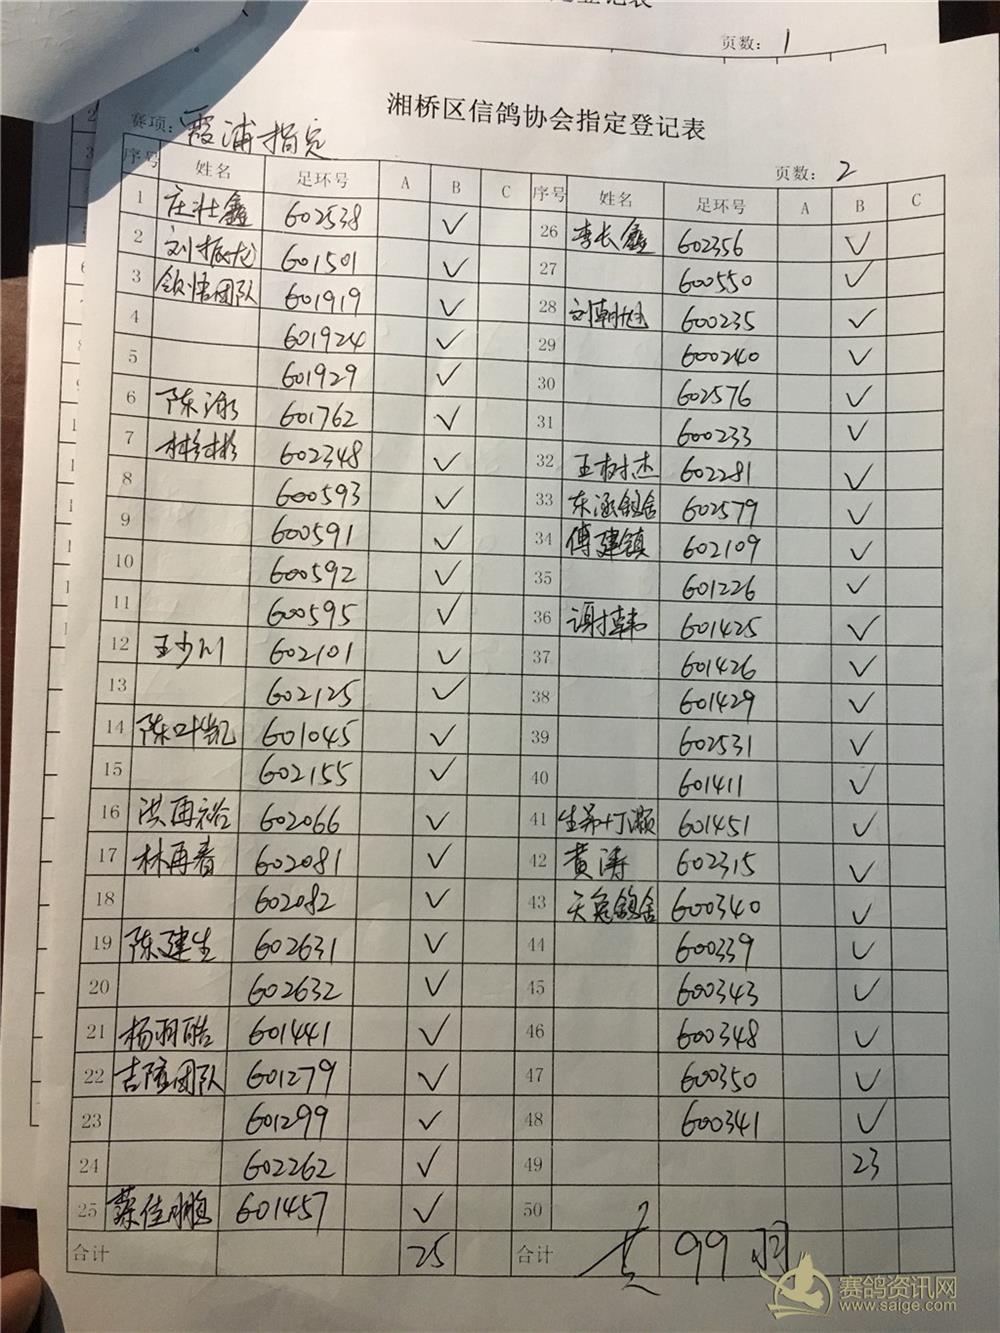 定登记表
页数： 1
湘桥区信鸽协会指定登记表
赛项： 霞浦指定
页数： 2
序号 姓名 足环号 A B C 序号 姓名 足环号 A B C
1 庄壮鑫 602538 ✓ 26 李长鑫 602356 ✓
2 刘振龙 601501 ✓ 27 600550 ✓
3 钦悟团队 601919 ✓ 28 刘朝旭 600235 ✓
4 601924 ✓ 29 600240 ✓
5 601929 ✓ 30 602576 ✓
6 陈 601762 ✓ 31 600233 ✓
7 林彬彬 602348 ✓ 32 王树杰 602281 ✓
8 600593 ✓ 33 东涵鸽舍 602579 ✓
9 600591 ✓ 34 傅建镇 602109 ✓
10 600592 ✓ 35 601226 ✓
11 600595 ✓ 36 谢韩 601425 ✓
12 王少川 602101 ✓ 37 601426 ✓
13 602125 ✓ 38 601429 ✓
14 陈叶凯 601045 ✓ 39 602531 ✓
15 602155 ✓ 40 601411 ✓
16 洪再裕 602066 ✓ 41 601451 ✓
17 林再春 602081 ✓ 42 黄涛 602315 ✓
18 602082 ✓ 43 天兔鸽舍 600340 ✓
19 陈建生 602631 ✓ 44 600339 ✓
20 602632 ✓ 45 600343 ✓
21 杨羽皓 601441 ✓ 46 600348 ✓
22 吉隆团队 601279 ✓ 47 600350 ✓
23 601299 ✓ 48 600341 ✓
24 602262 ✓ 49 23
25 蔡佳鹏 601457 ✓ 50
合计 25 合计 共 99 羽
赛鸽资讯网
www.saige.com